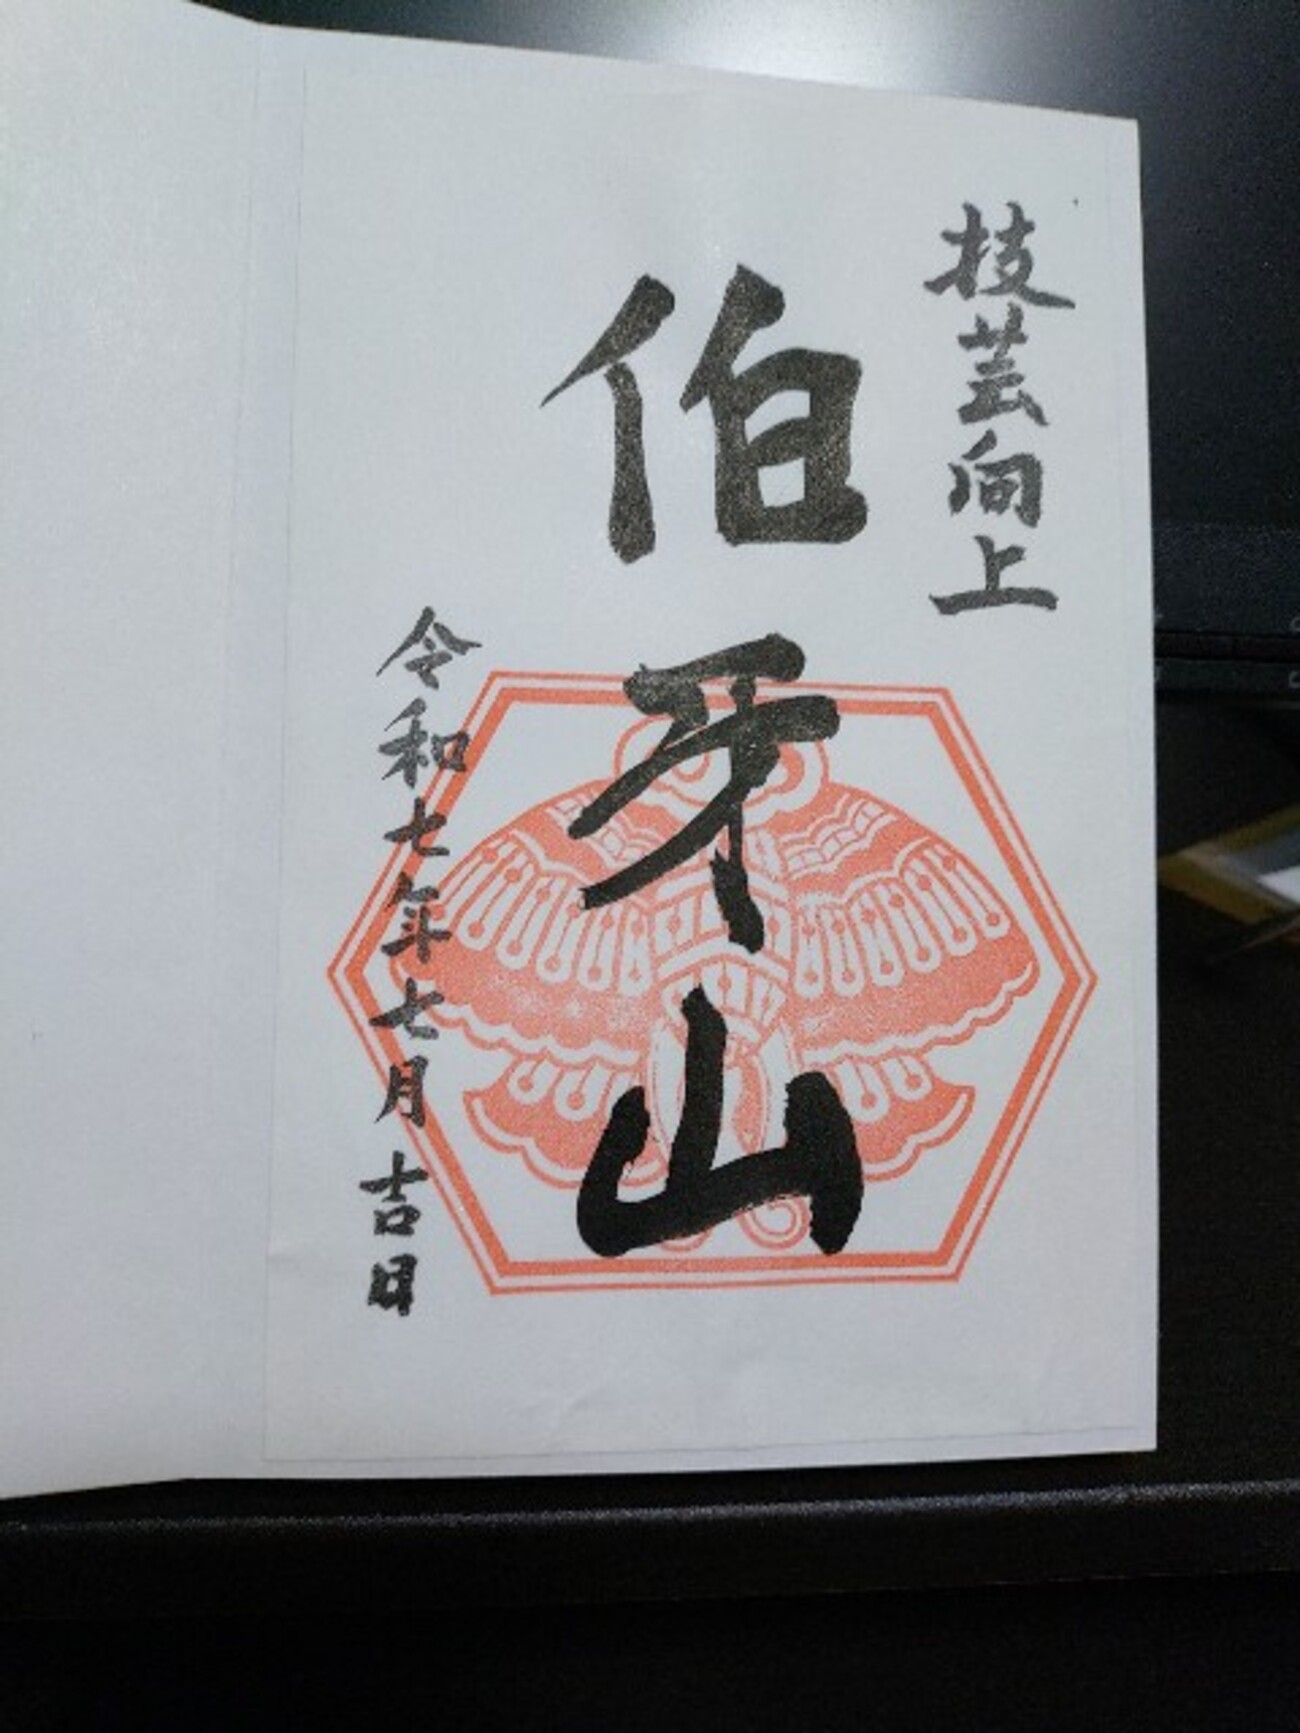 技芸向上
伯牙山
令和七年七月吉日